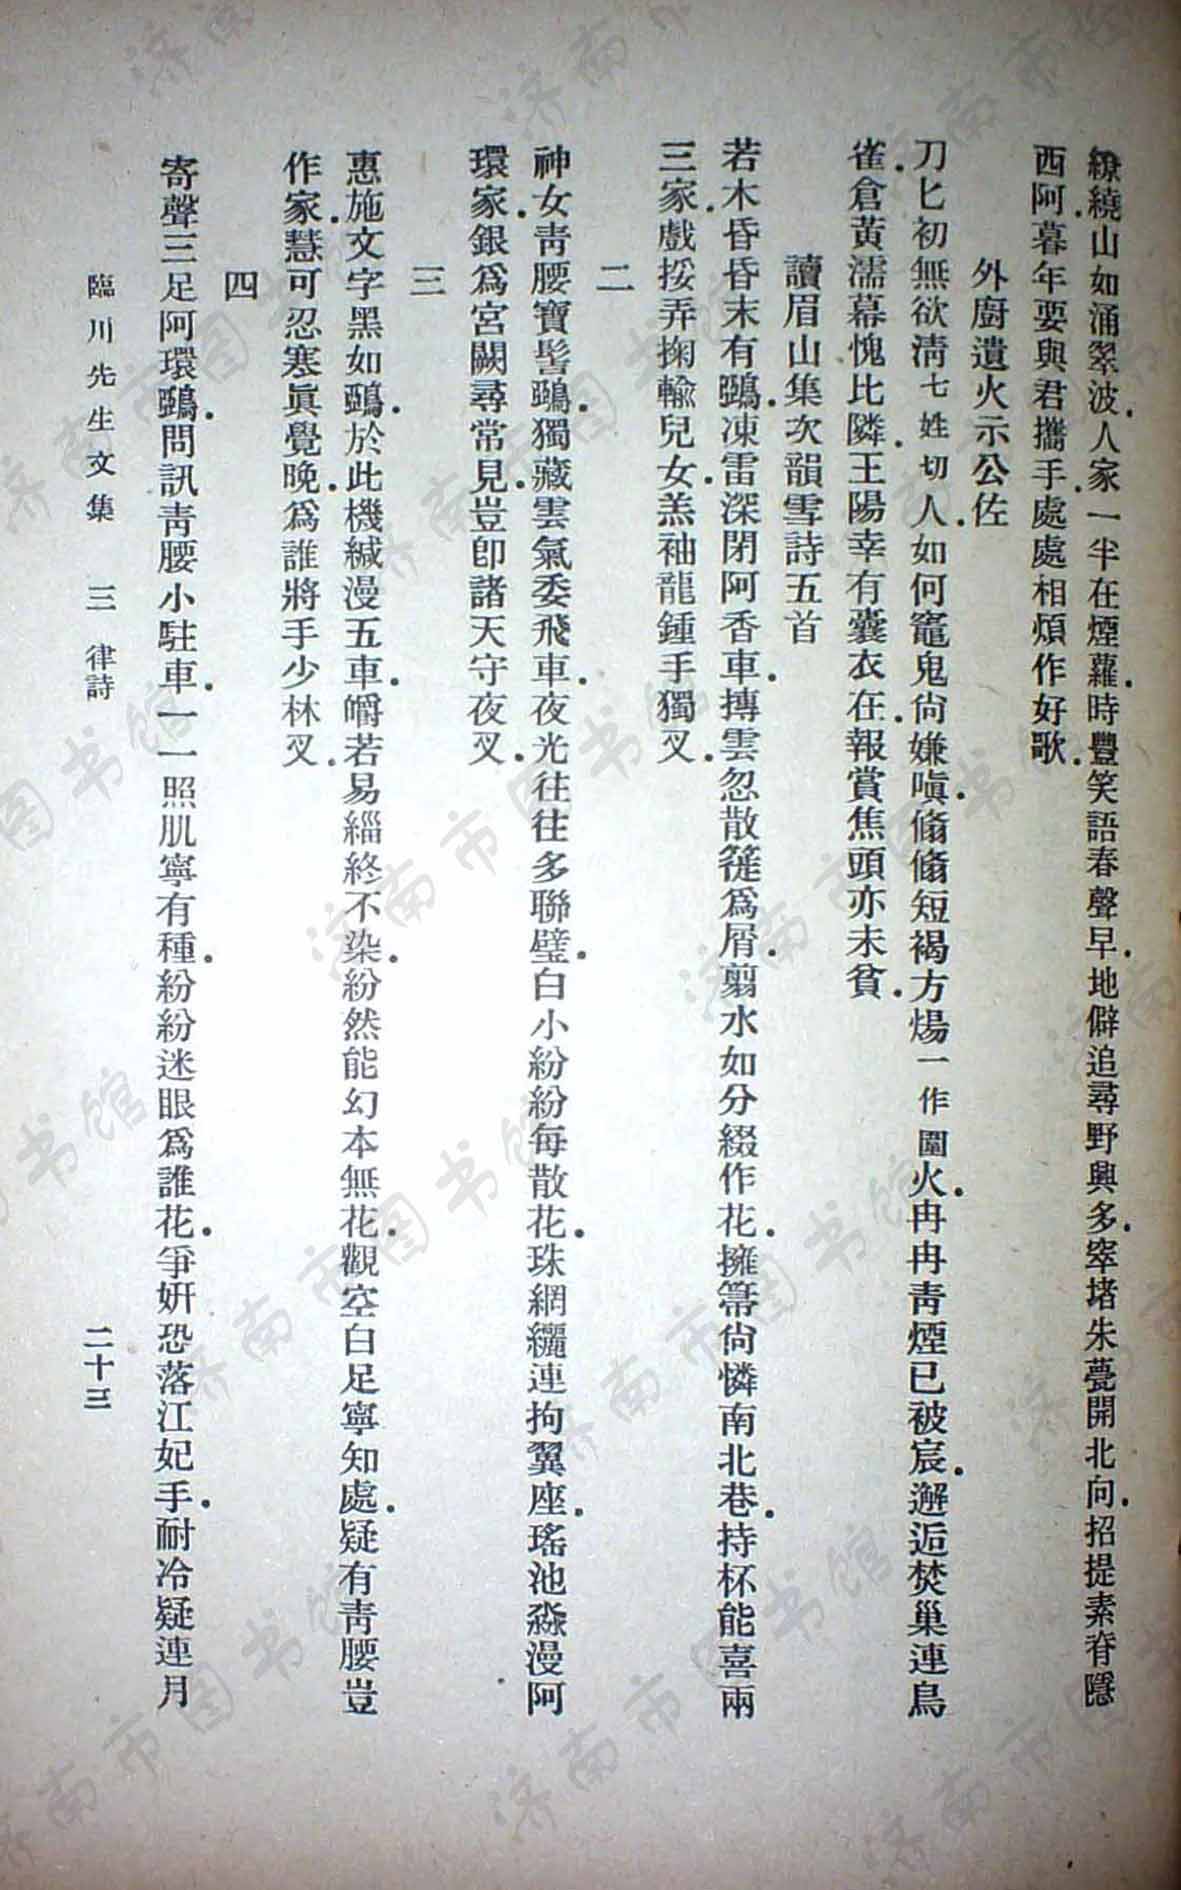 繚繞山如涌翠波．人家一半在煙蘿．時豐笑語春聲早．地僻追尋野興多．窣堵朱甍開北向．招提素脊隱
西阿．暮年要與君攜手．處處相煩作好歌．
外廚遺火示公佐
刀匕初無欲清七姓切人．如何竈鬼尙嫌嗔．翛翛短褐方煬一作圍火．冉冉靑煙已被宸．邂逅焚巢連鳥
雀．倉黃濡幕愧比隣．王陽幸有囊衣在．報賞焦頭亦未貧．
讀眉山集次韻雪詩五首
若木昏昏末有鵶．凍雷深閉阿香車．摶雲忽散簁爲屑．剪水如分綴作花．擁箒尙憐南北巷．持杯能喜兩
三家．戲挼弄掬輸兒女．羔袖龍鍾手獨叉．
二
神女靑腰寶髻鵶．獨藏雲氣委飛車．夜光往往多聯璧．白小紛紛每散花．珠網纚連拘翼座．瑤池淼漫阿
環家．銀爲宮闕尋常見．豈卽諸天守夜叉．
三
惠施文字黑如鵶．於此機緘漫五車．皭若易緇終不染．紛然能幻本無花．觀空白足寧知處．疑有靑腰豈
作家．慧可忍寒眞覺晚．爲誰將手少林叉．
四
寄聲三足阿環鵶．問訊靑腰小駐車．一一照肌寧有種．紛紛迷眼爲誰花．爭妍恐落江妃手．耐冷疑連月
臨川先生文集 三 律詩 二十三
济南市图书馆